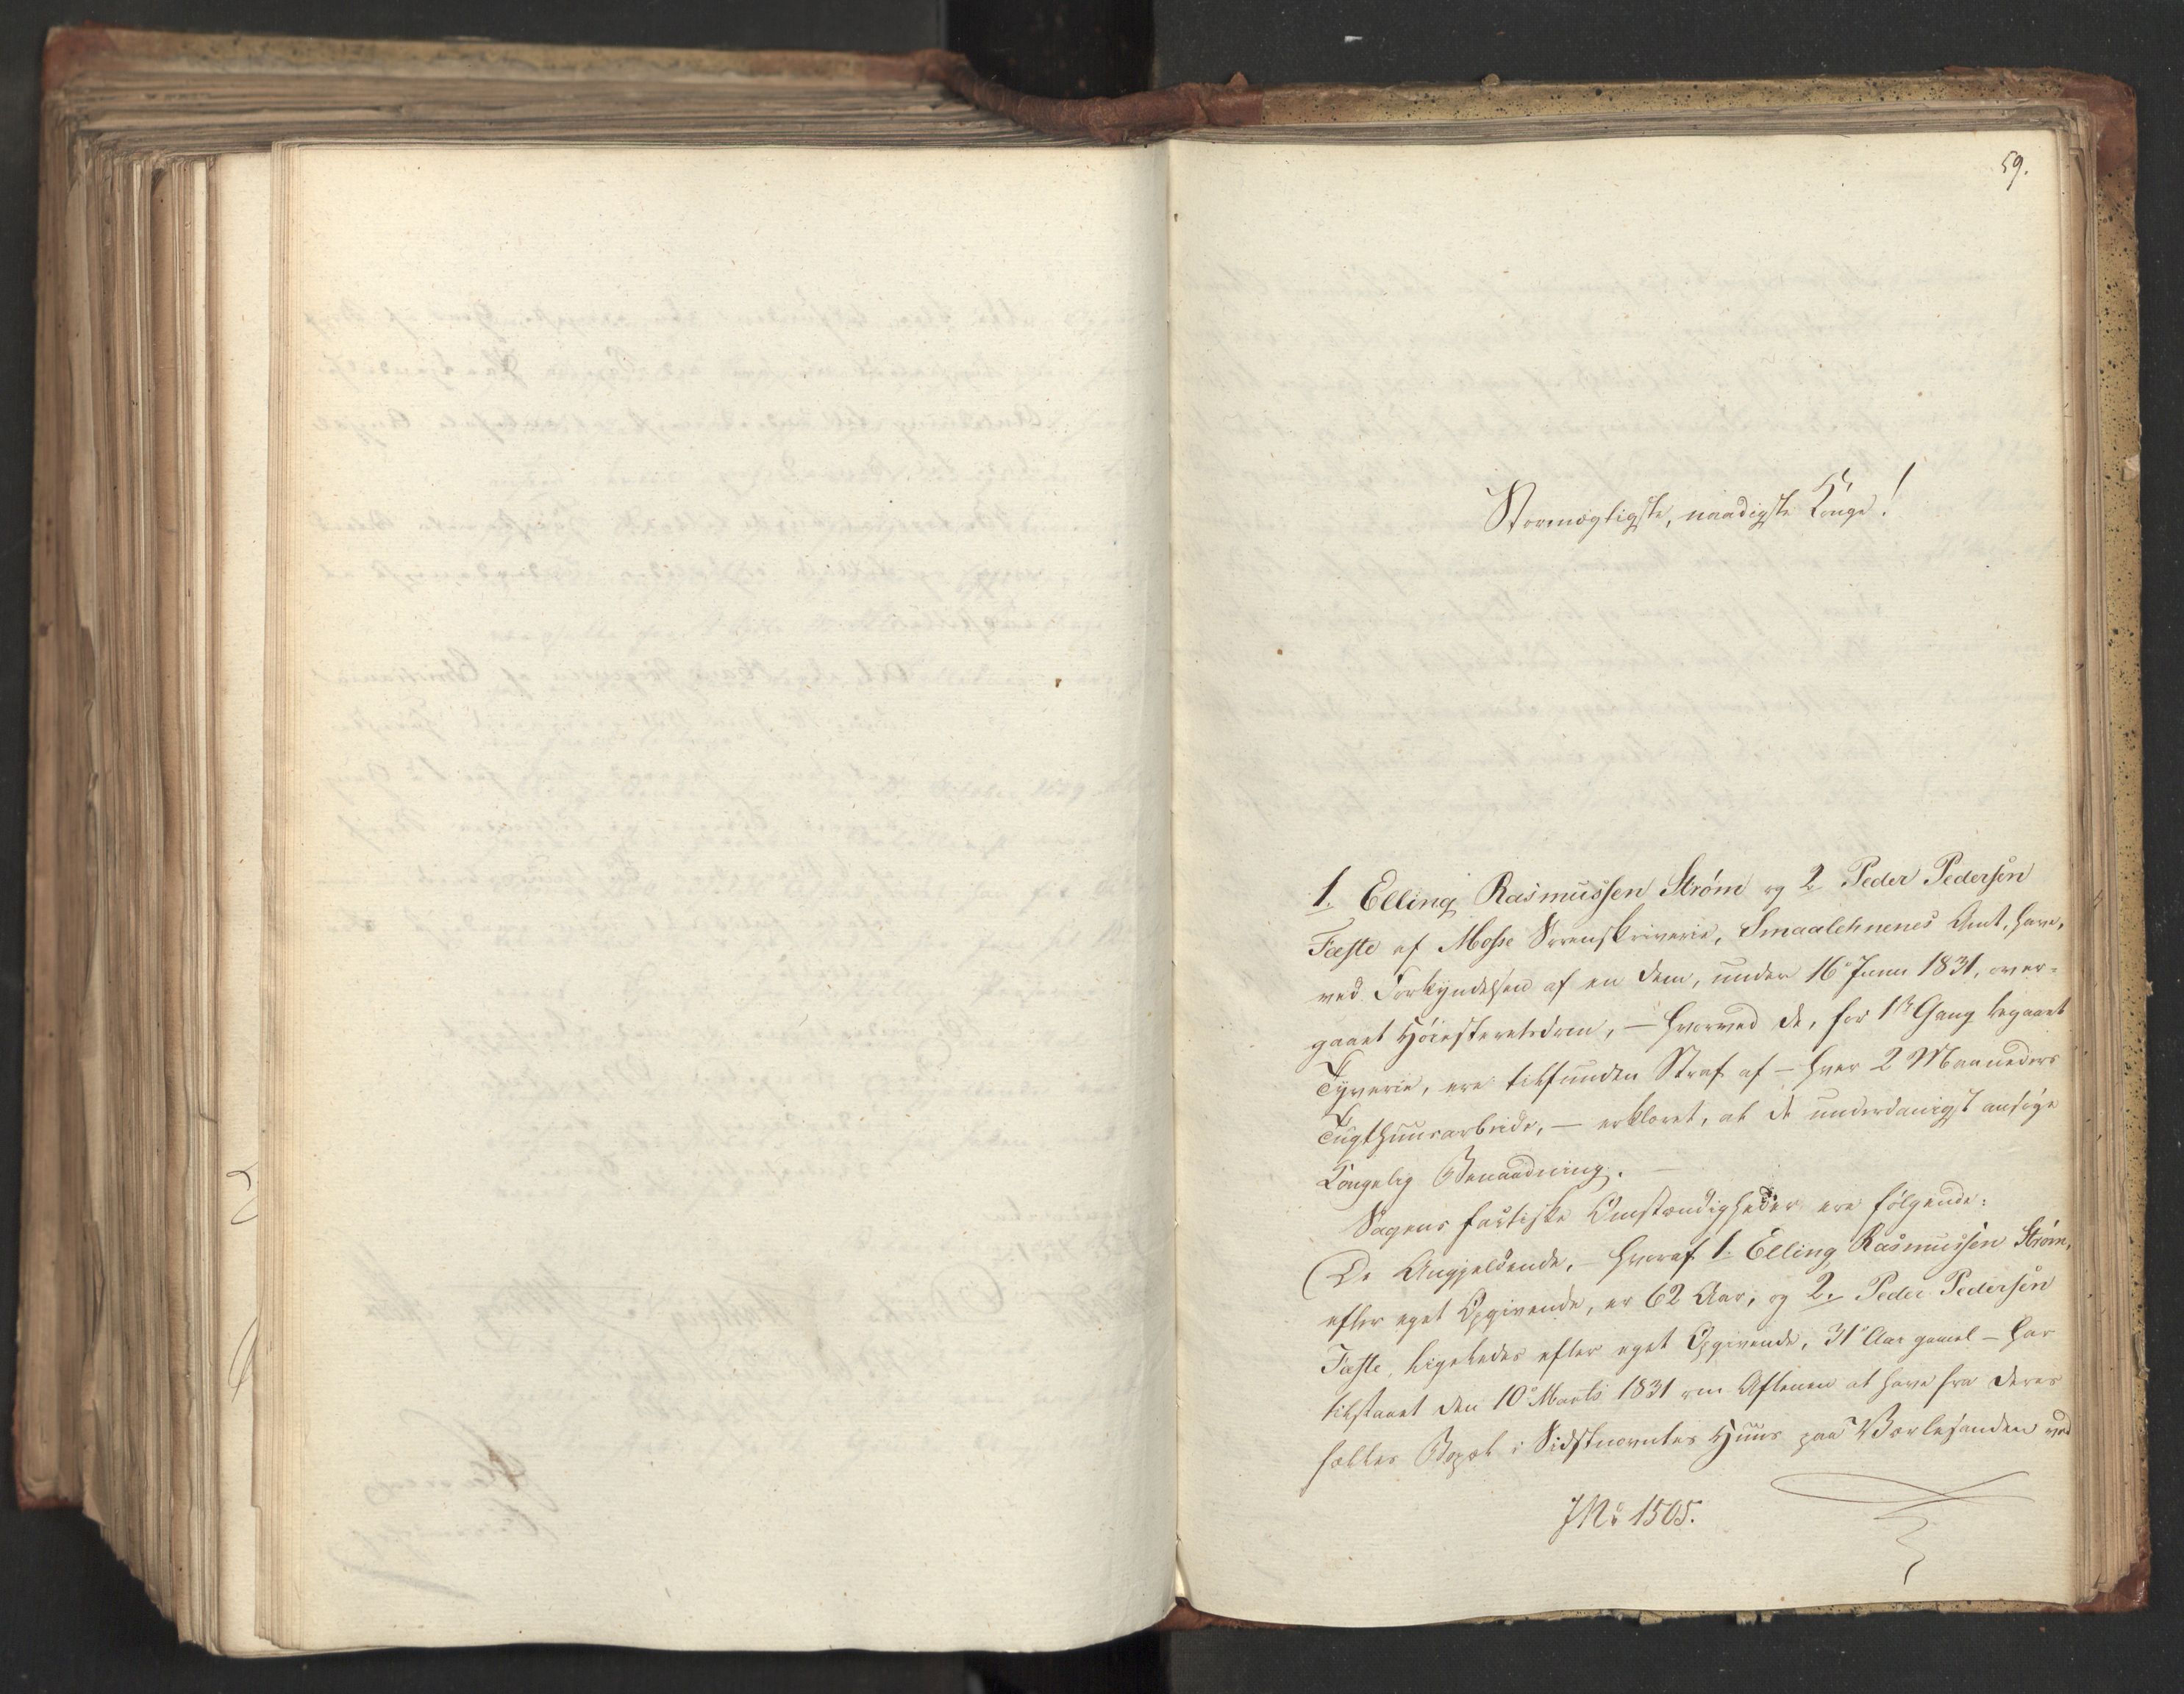 59.
Stormægtigste, naadigste Konge!
1. Elling Rasmussen Strøm og 2 Peder Pedersen
Fæste af Mosse Sorenskriverie, Smaalehnenes Amt, have,
ved Forkyndelsen af en dem, under 16de Juni 1831, over-
gaaet Høiesteretsdom, – hvorved de, for 1ste Gang begaaet
Tyverie, ere tilfunden Straf af – hver 2 Maaneders
Tugthuusarbeide, – erklæret, at de underdanigst ansøge
Kongelig Benaadning. –
Sagens factiske Omstændigheder ere følgende:
De Angjeldende, – hvoraf 1. Elling Rasmussen Strøm,
efter eget Opgivende, er 62 Aar, og 2. Peder Pedersen
Fæste, ligeledes efter eget Opgivende, 31 Aar gamel – har
tilstaaet den 10de Marts 1831 om Aftenen at have fra deres
fælles Bopæl i Sidstnævntes Huus paa Værlesanden ved
JNo 1505.